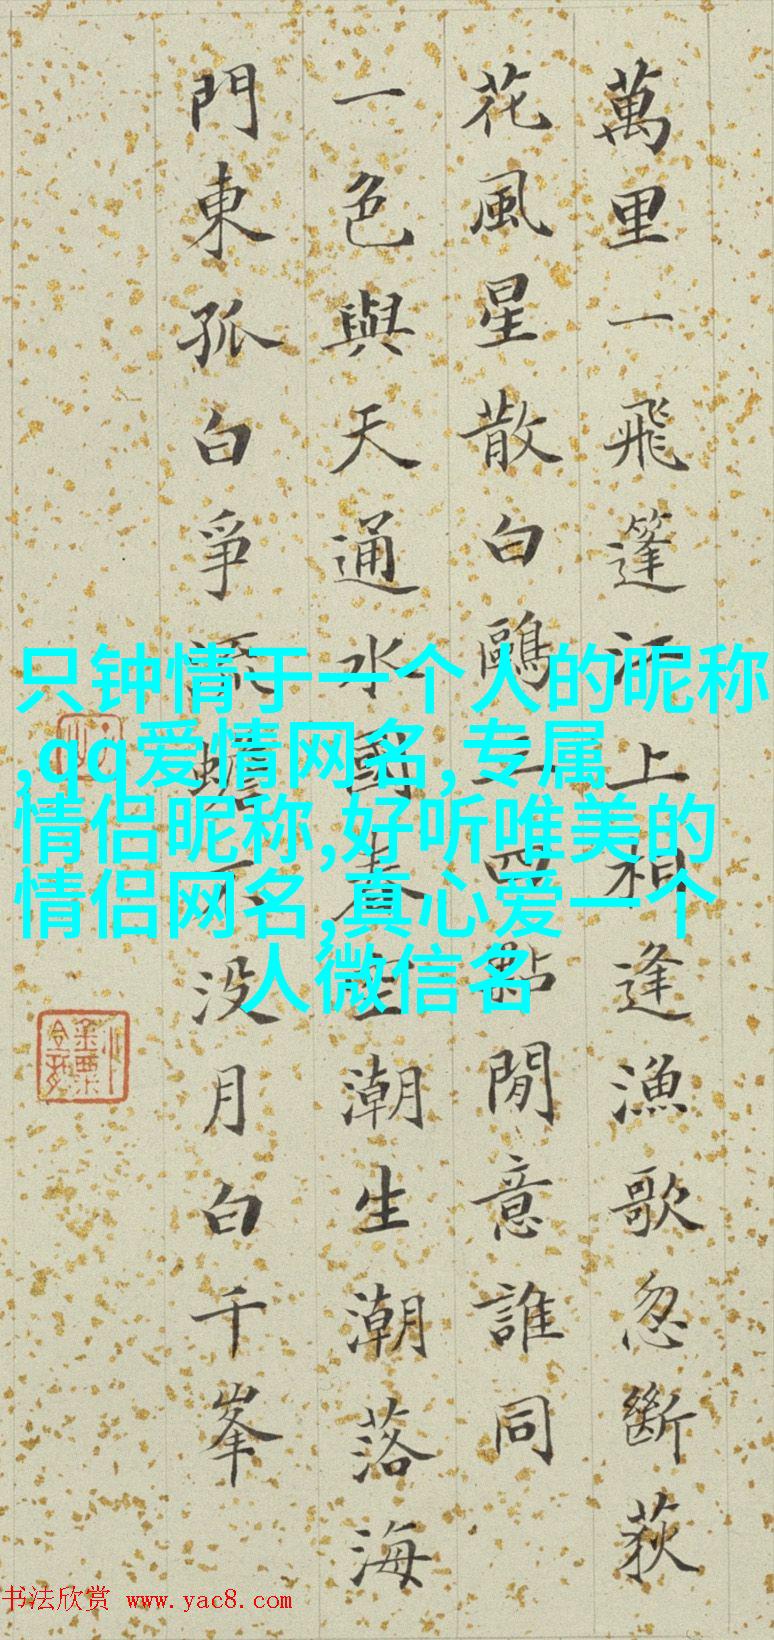 萬里一飛篷江上相逢漁歌忽斷荻
花風星散白鷗三四點閒意誰同
一色與天通水國春空潮生潮落海
門東孤白爭流蟾不没月白千峯
只钟情于一个人的昵称
,qq爱情网名,专属
情侣昵称,好听唯美的
情侣网名,真心爱一个
人微信名
书法欣赏 www.yac8.com